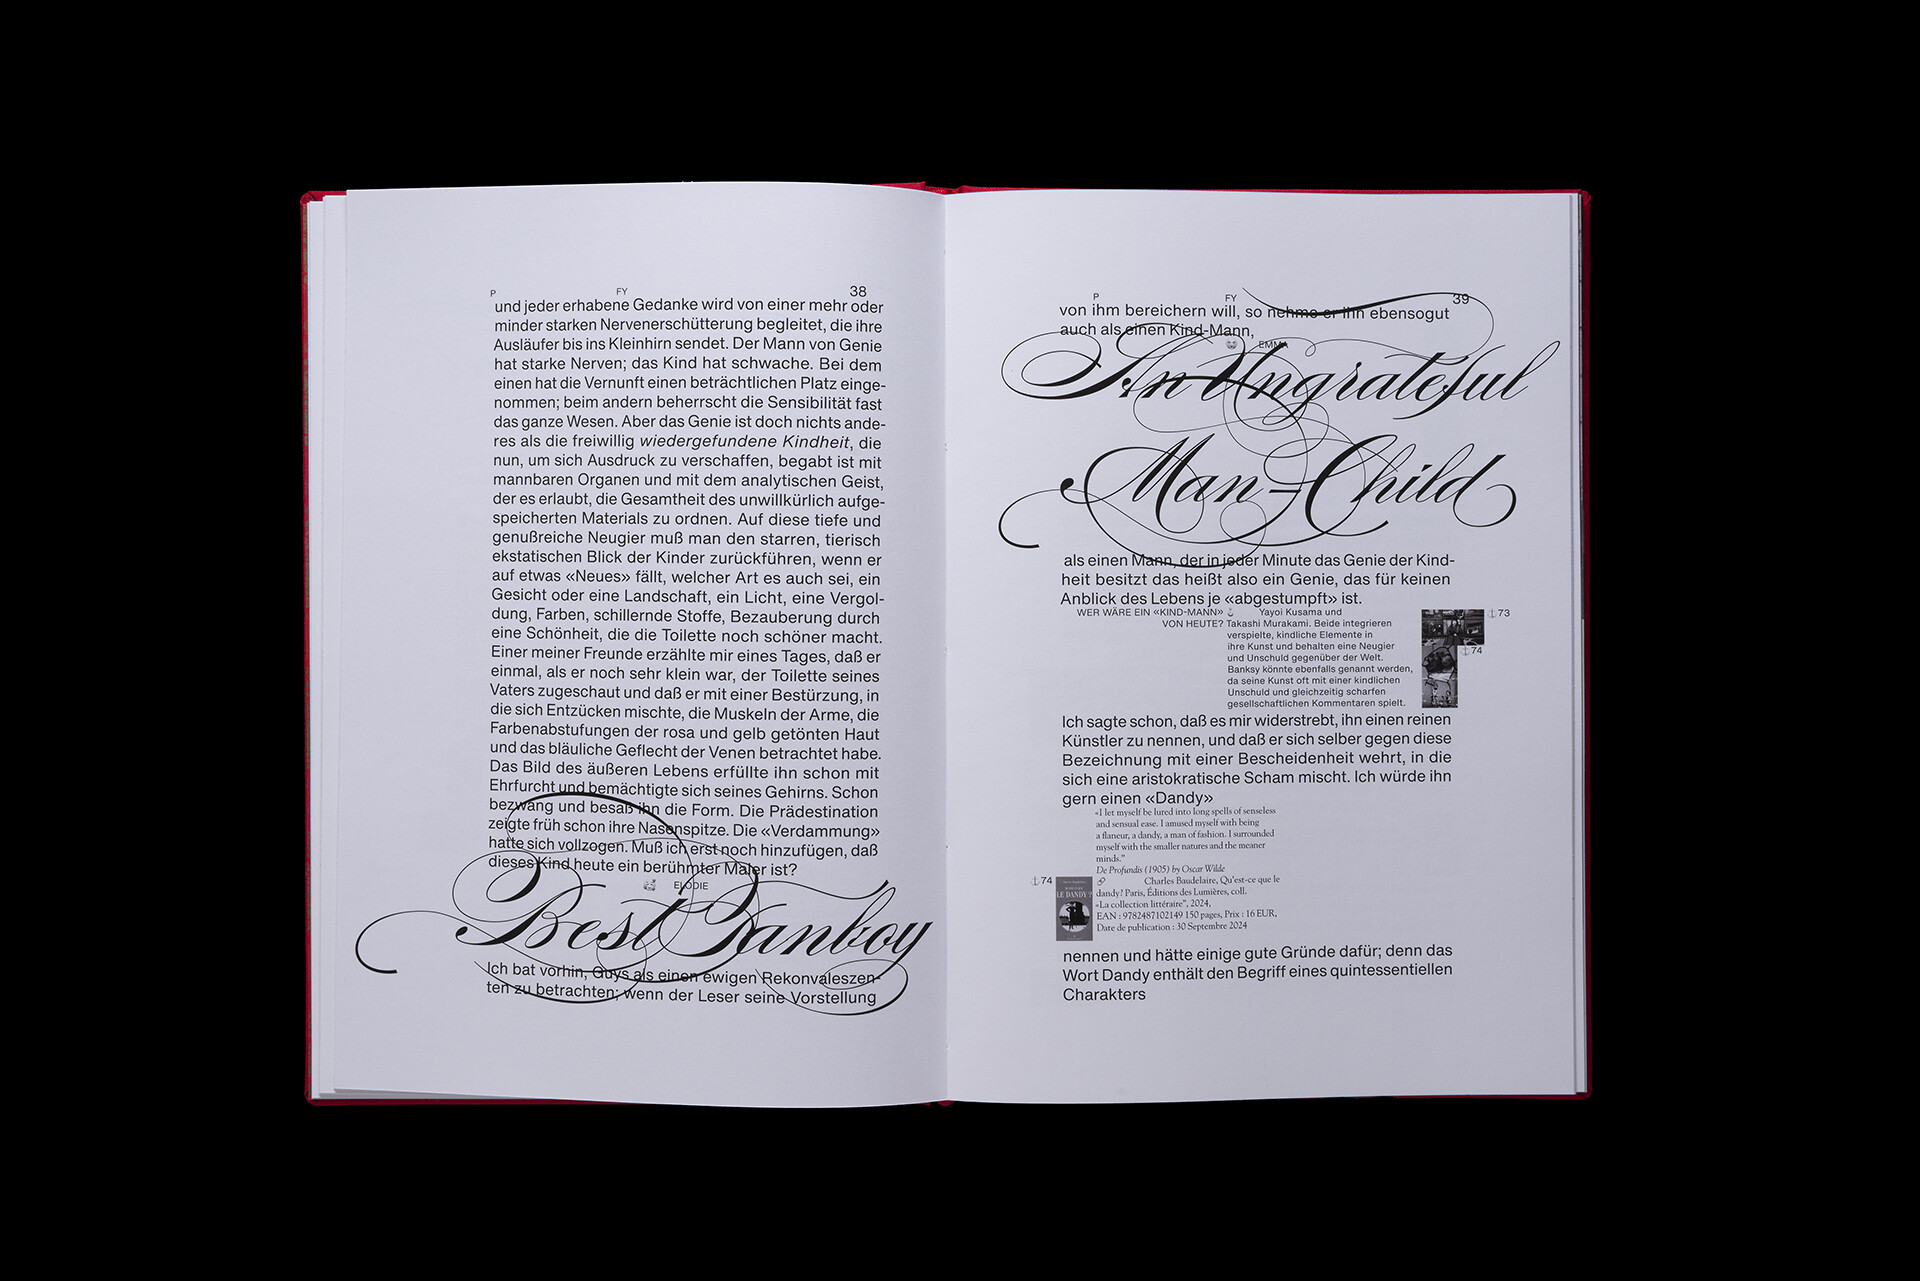 P FY 38
und jeder erhabene Gedanke wird von einer mehr oder
minder starken Nervenerschütterung begleitet, die ihre
Ausläufer bis ins Kleinhirn sendet. Der Mann von Genie
hat starke Nerven; das Kind hat schwache. Bei dem
einen hat die Vernunft einen beträchtlichen Platz einge-
nommen; beim andern beherrscht die Sensibilität fast
das ganze Wesen. Aber das Genie ist doch nichts ande-
res als die freiwillig wiedergefundene Kindheit, die
nun, um sich Ausdruck zu verschaffen, begabt ist mit
mannbaren Organen und mit dem analytischen Geist,
der es erlaubt, die Gesamtheit des unwillkürlich aufge-
speicherten Materials zu ordnen. Auf diese tiefe und
genußreiche Neugier muß man den starren, tierisch
ekstatischen Blick der Kinder zurückführen, wenn er
auf etwas «Neues» fällt, welcher Art es auch sei, ein
Gesicht oder eine Landschaft, ein Licht, eine Vergol-
dung, Farben, schillernde Stoffe, Bezauberung durch
eine Schönheit, die die Toilette noch schöner macht.
Einer meiner Freunde erzählte mir eines Tages, daß er
einmal, als er noch sehr klein war, der Toilette seines
Vaters zugeschaut und daß er mit einer Bestürzung, in
die sich Entzücken mischte, die Muskeln der Arme, die
Farbenabstufungen der rosa und gelb getönten Haut
und das bläuliche Geflecht der Venen betrachtet habe.
Das Bild des äußeren Lebens erfüllte ihn schon mit
Ehrfurcht und bemächtigte sich seines Gehirns. Schon
bezwang und besaß ihn die Form. Die Prädestination
zeigte früh schon ihre Nasenspitze. Die «Verdammung»
hatte sich vollzogen. Muß ich erst noch hinzufügen, daß
dieses Kind heute ein berühmter Maler ist?
ELODIE
Best Fanboy
Ich bat vorhin, Guys als einen ewigen Rekonvaleszen-
ten zu betrachten; wenn der Leser seine Vorstellung
P FY 39
von ihm bereichern will, so nehme er ihn ebensogut
auch als einen Kind-Mann,
EMMA
An Ungrateful
Man-Child
als einen Mann, der in jeder Minute das Genie der Kind-
heit besitzt das heißt also ein Genie, das für keinen
Anblick des Lebens je «abgestumpft» ist.
WER WÄRE EIN «KIND-MANN»
VON HEUTE?
Yayoi Kusama und
Takashi Murakami. Beide integrieren
verspielte, kindliche Elemente in
ihre Kunst und behalten eine Neugier
und Unschuld gegenüber der Welt.
Banksy könnte ebenfalls genannt werden,
da seine Kunst oft mit einer kindlichen
Unschuld und gleichzeitig scharfen
gesellschaftlichen Kommentaren spielt.
73
74
Ich sagte schon, daß es mir widerstrebt, ihn einen reinen
Künstler zu nennen, und daß er sich selber gegen diese
Bezeichnung mit einer Bescheidenheit wehrt, in die
sich eine aristokratische Scham mischt. Ich würde ihn
gern einen «Dandy»
«I let myself be lured into long spells of senseless
and sensual ease. I amused myself with being
a flaneur, a dandy, a man of fashion. I surrounded
myself with the smaller natures and the meaner
minds.”
De Profundis (1905) by Oscar Wilde
74
LE DANDY?
Charles Baudelaire, Qu'est-ce que le
dandy? Paris, Éditions des Lumières, coll.
«La collection littéraire”, 2024,
EAN : 9782487102149 150 pages, Prix : 16 EUR,
Date de publication : 30 Septembre 2024
nennen und hätte einige gute Gründe dafür; denn das
Wort Dandy enthält den Begriff eines quintessentiellen
Charakters